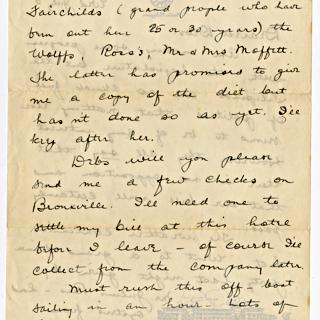 Fairchilds (grand people who have
been out here 25 or 30 years) the
Wolffs, Ross's, Mr & Mrs Moffett.
The latter has promised to give
me a copy of the diet but
hasn't done so as yet, I'll
key after her.
Debs will you please
send me a few checks on
Bronxville. I'll need one to
settle my bill at this hotel
before I leave - of course I'll
collect from the company later.
- Must rush this off - boat
sailing in an hour - Lots of